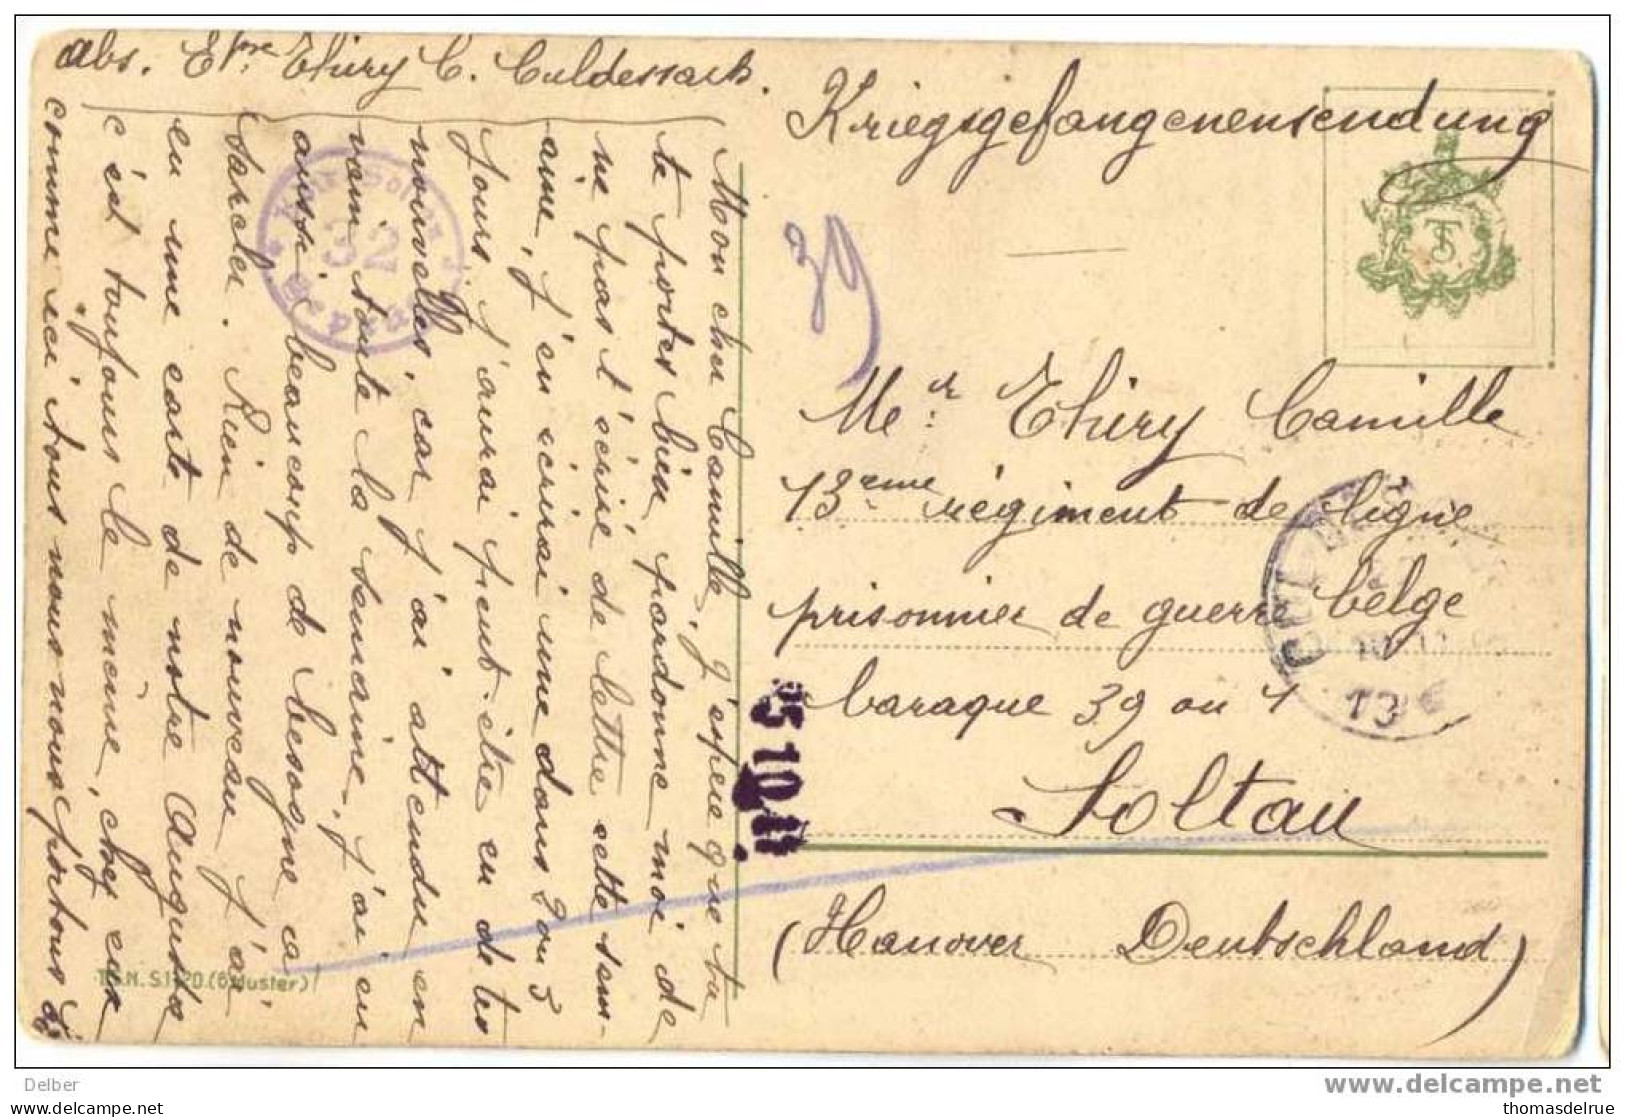 abs. Thiry C. Culdessarts.
Kriegsgefangenensendung
39
Mer. Thiry Camille
13eme régiment de ligne
prisonnier de guerre belge
baraque 39 ou 1
Soltau
(Hanover Deutschland)
Mon cher Camille, j'espère que tu
te portes bien, pardonne moi de
ne pas t'écrire de lettre cette sem-
aine, j'en écrirai une dans 2 ou 3
jours. J'aurai peut-être eu de tes
nouvelles, car j'ai attendu en
vain toute la semaine, j'ai eu
aussi beaucoup de besogne a
Rien de nouveau j'ai
eu une carte de notre Auguste
c'est toujours le même, chez eux
comme ici tous nous nous portons
32
25 10
CULDES
13
S.1120. (6 Muster)
Delber
www.delcampe.net
www.delcampe.com
thomasdelrue